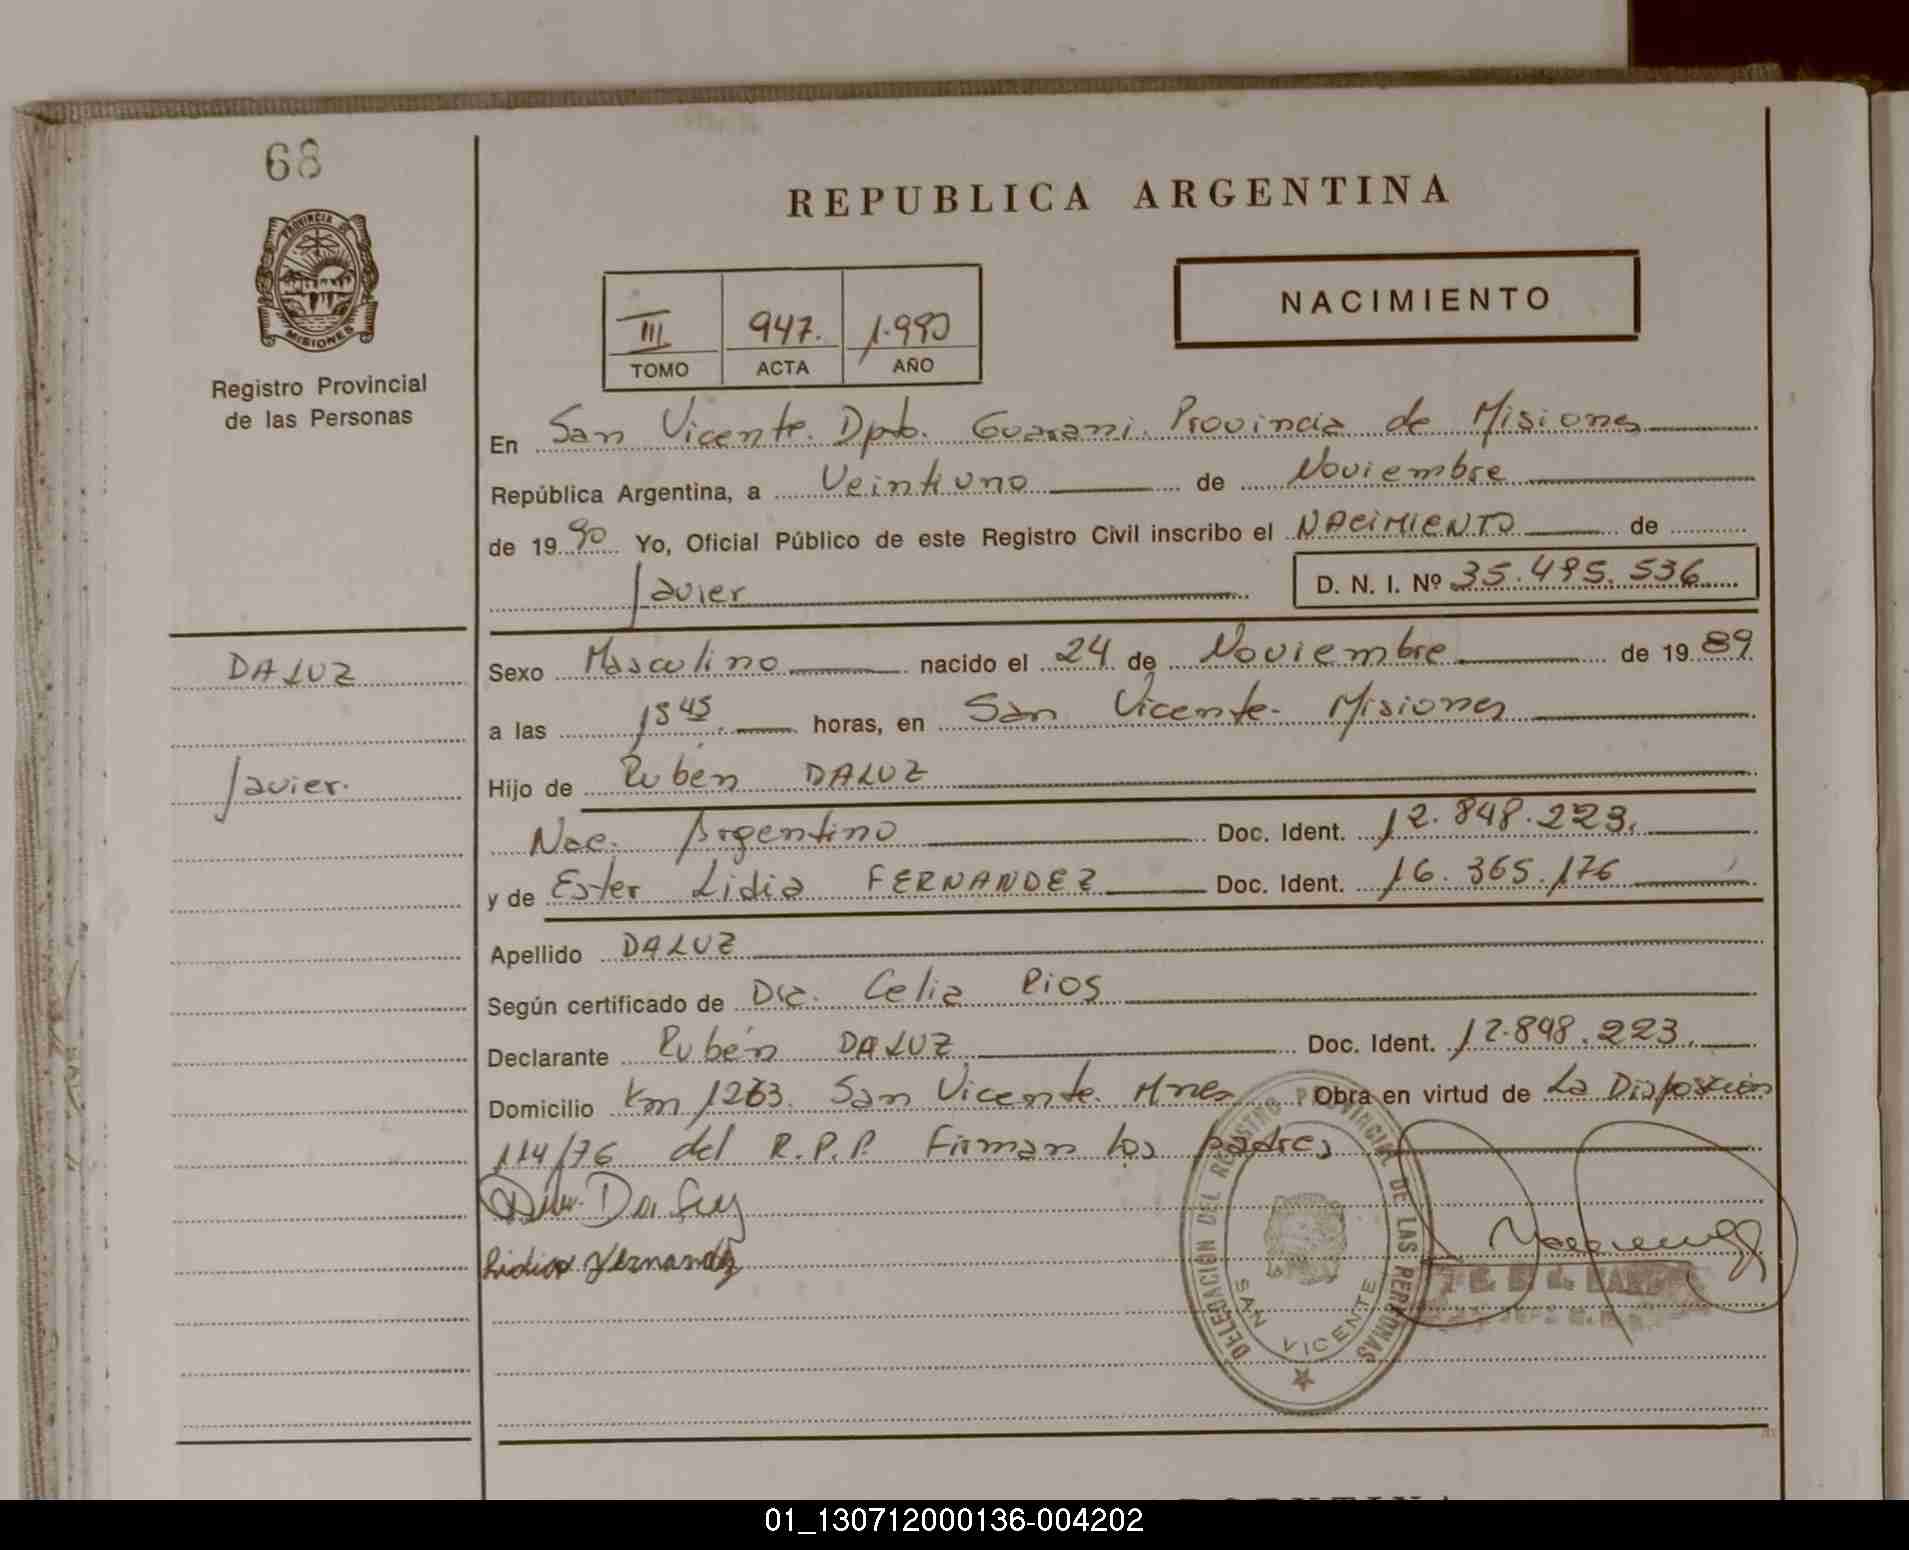 68
PROVINCIA DE
MISIONES
Registro Provincial
de las Personas
REPUBLICA ARGENTINA
III 947. 1.990
TOMO ACTA AÑO
NACIMIENTO
En San Vicente. Dpto. Guarani. Provincia de Misiones
República Argentina, a Veintiuno de Noviembre
de 1990 Yo, Oficial Público de este Registro Civil inscribo el NACIMIENTO de
Javier D. N. I. Nº 35.495.536
DALUZ
Javier.
Sexo Masculino nacido el 24 de Noviembre de 1989
a las horas, en San Vicente - Misiones
Hijo de Rubén DALUZ
Nac. Argentino Doc. Ident. 12.848.223.
y de Ester Lidia FERNANDEZ Doc. Ident. 16.365.176
Apellido DALUZ
Según certificado de Dra. Celia Rios
Declarante Rubén DALUZ Doc. Ident. 12.848.223.
Domicilio Km 1263. San Vicente. Mnes Obra en virtud de La Disposición
114/76 del R.P.P. Firman los padres
Lidia Fernandez
DELEGACIÓN DEL REGISTRO PROVINCIAL DE LAS PERSONAS
SAN VICENTE
01_130712000136-004202